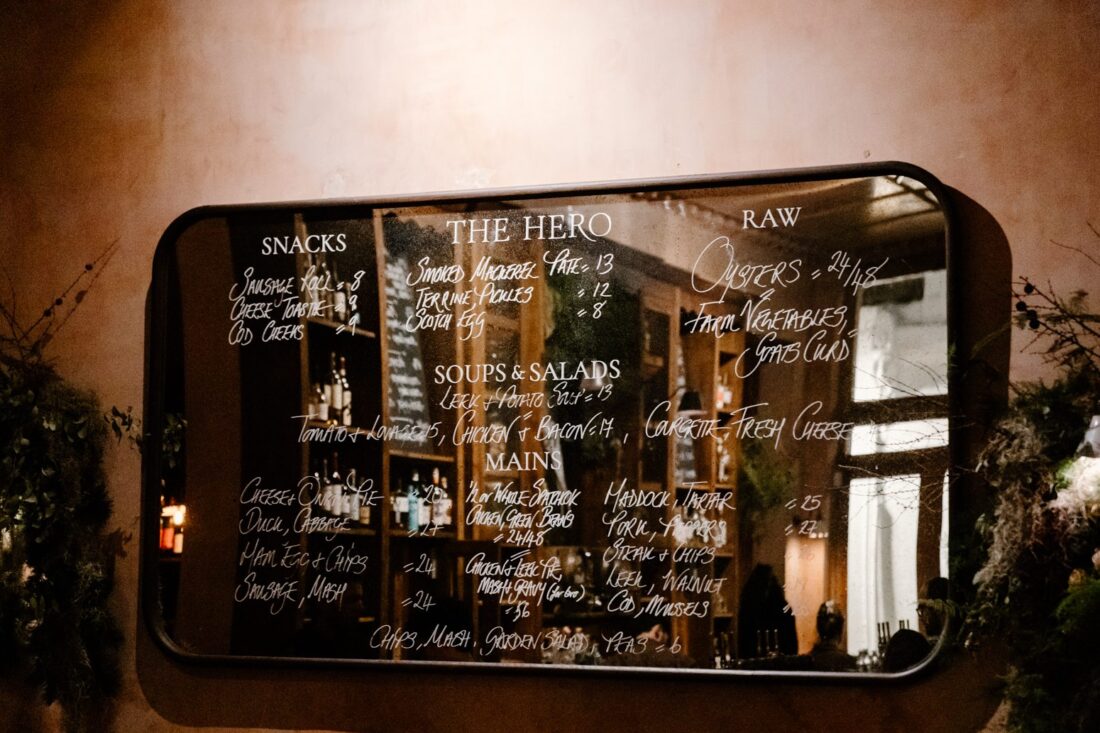 THE HERO
SNACKS
SAUSAGE ROLL = 8
CHEESE TOASTIE = 9
COD CHEEKS = 9
SMOKED MACKEREL PATE = 13
TERRINE, PICKLES = 12
SCOTCH EGG = 8
RAW
OYSTERS = 24/48
FARM VEGETABLES,
GOATS CURD
SOUPS & SALADS
LEEK + POTATO SOUP = 13
TOMATO + LOVAGE = 15, CHICKEN + BACON = 17, COURGETTE - FRESH CHEESE
MAINS
CHEESE + ONION PIE = 20
DUCK, CABBAGE
HAM EGG + CHIPS = 24
SAUSAGE, MASH = 24
WHOLE SPATCHCOK
CHICKEN, GREEN BEANS
= 24/48
CHICKEN + LEEK PIE
MASH + GRAVY
= 56
HADDOCK, TARTAR = 25
PORK, PEPPERS = 27
STEAK + CHIPS
LEEK, WALNUT
COD, MUSSELS
CHIPS, MASH, GARDEN SALAD, PEAS = 6